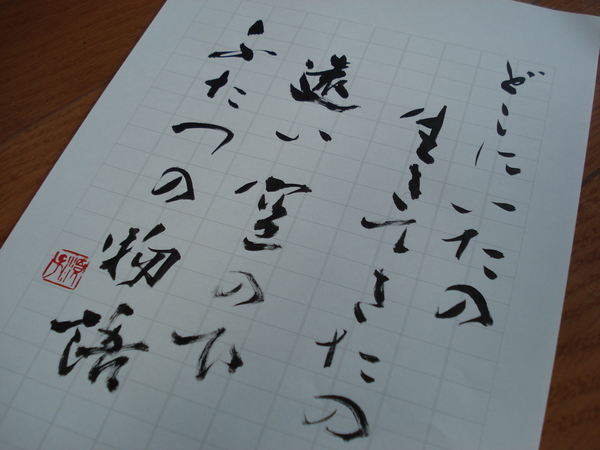 どこにいたの
生きてきたの
遠い空の下
ふたつの物語